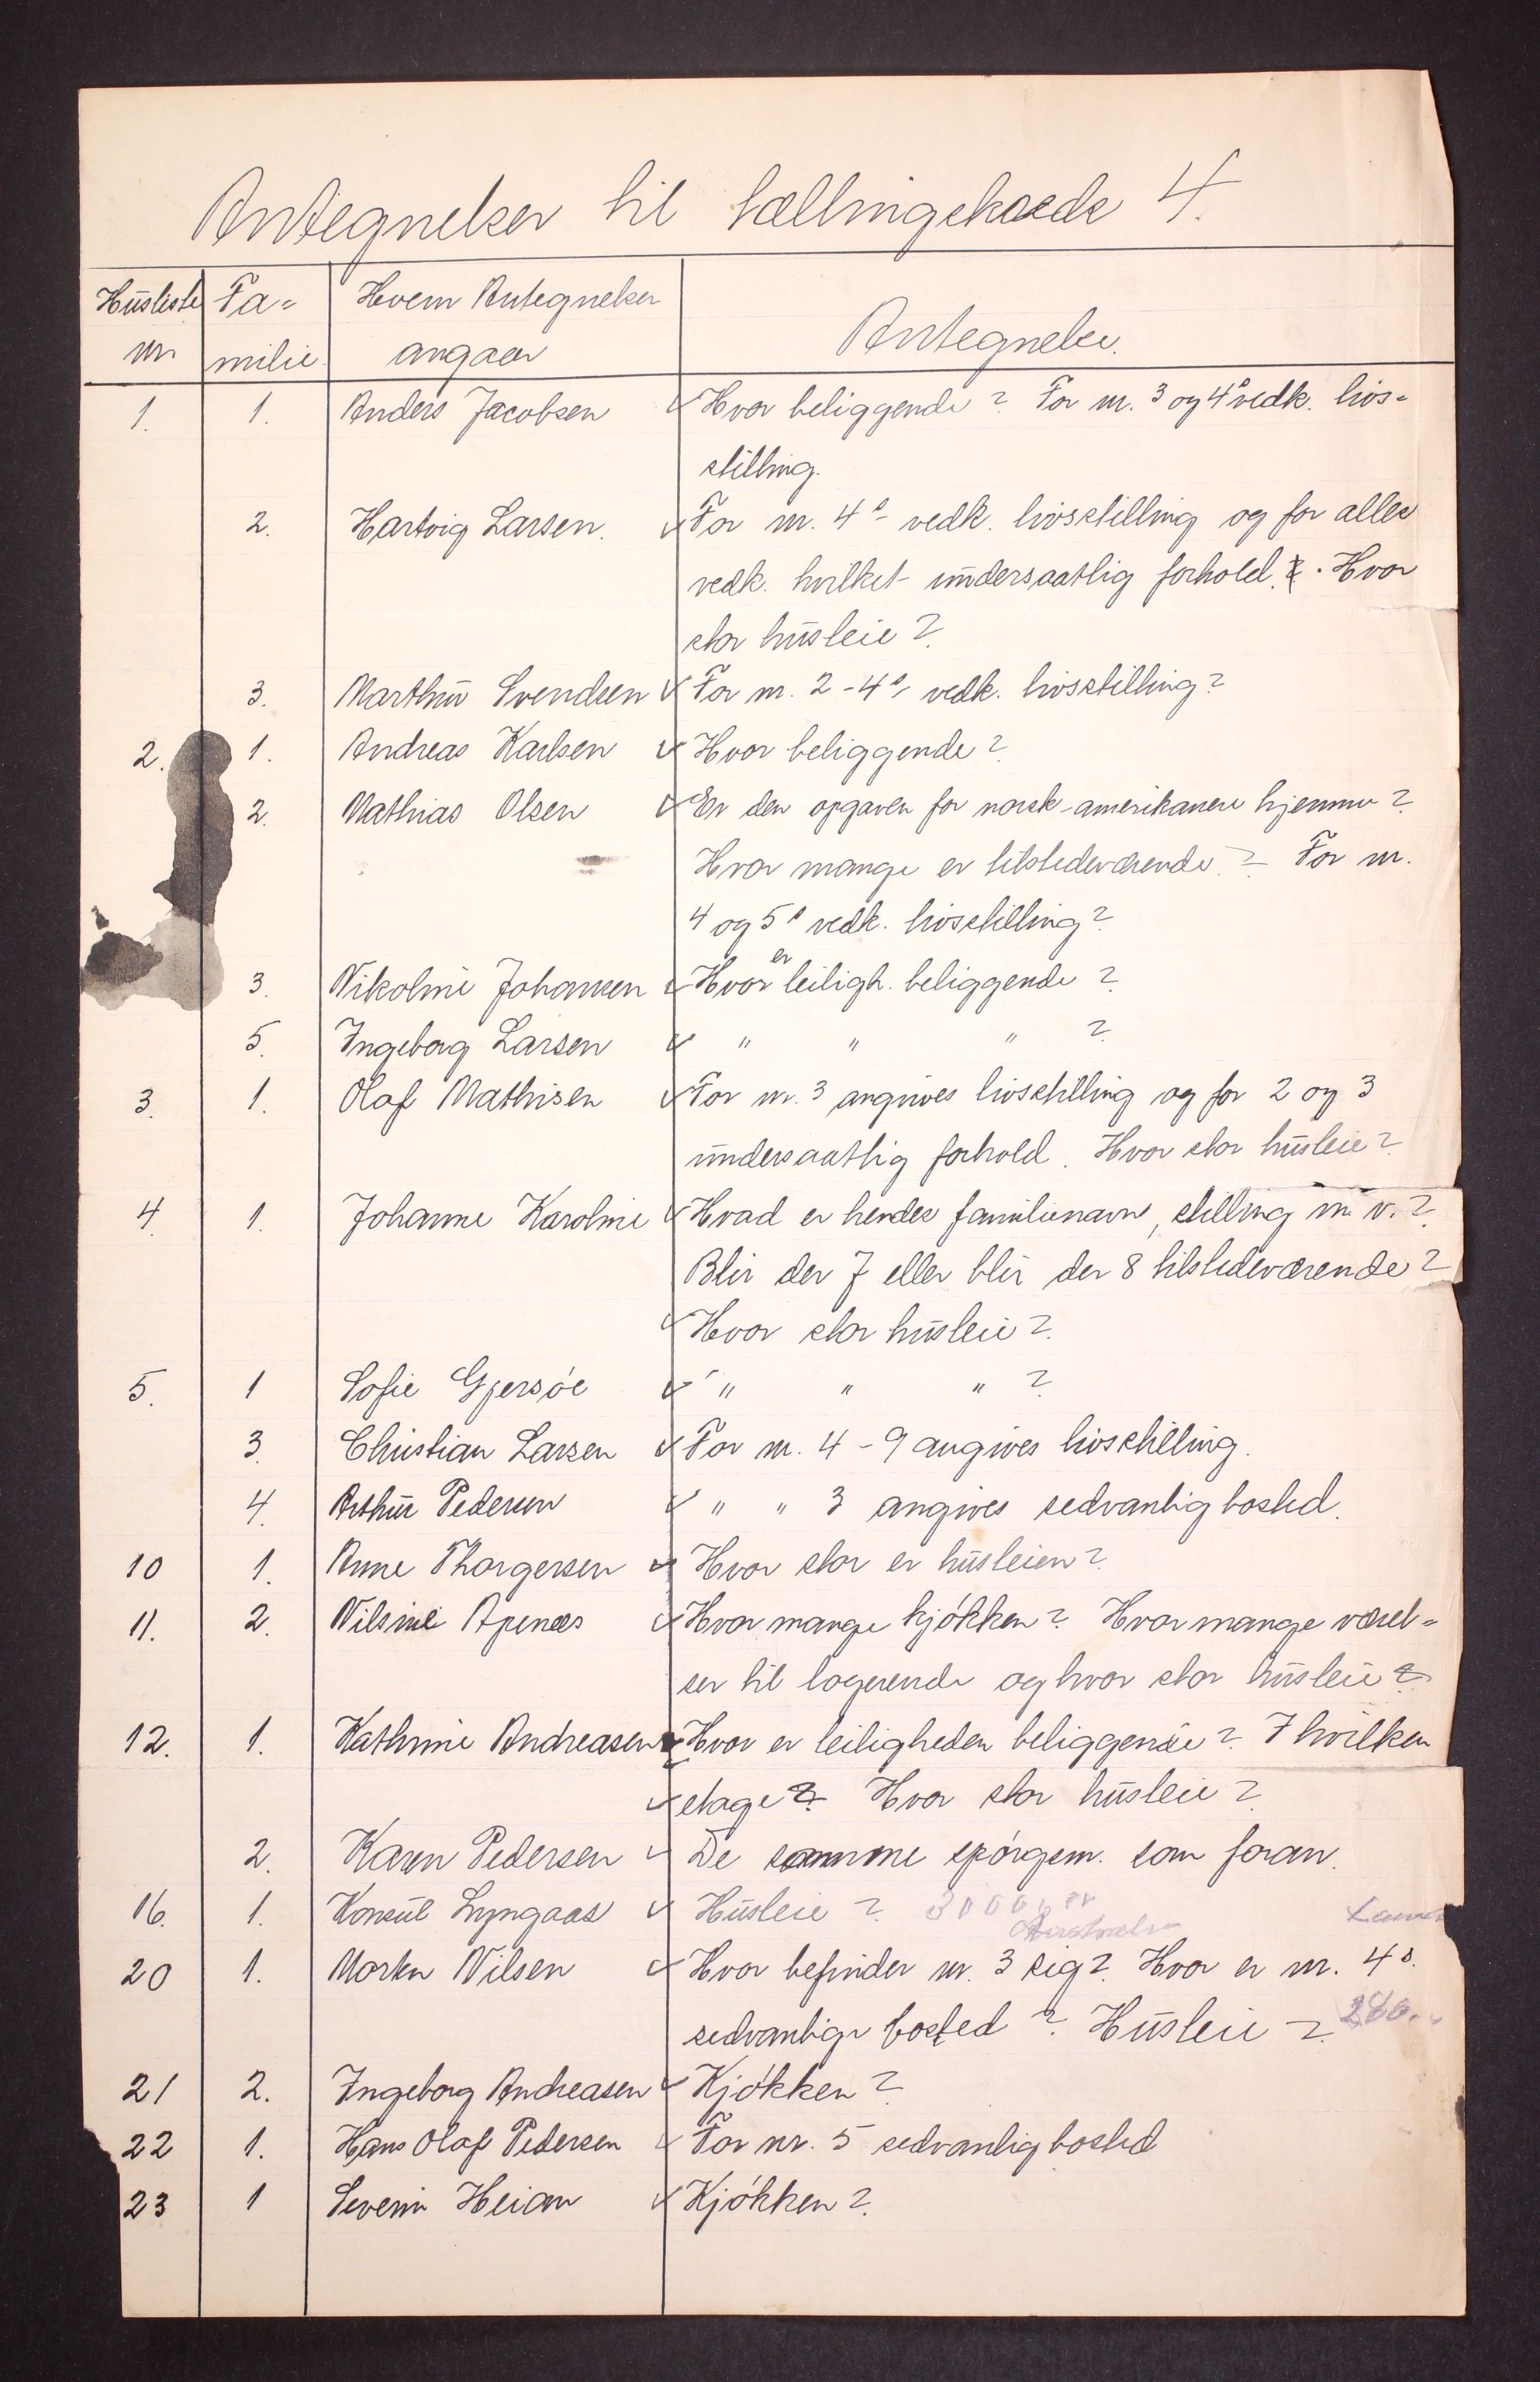 Antegnelser til tællingskreds 4.
Husliste Fa= Hvem Antegnelser
nr. milie angaar Antegnelse.
1. 1. Anders Jacobsen Hvor beliggende? For nr. 3 og 4s vedk. livs=
stilling.
2. Hartvig Larsen. For nr. 4s vedk. livsstilling og for alles
vedk. hvilket undersaatlig forhold. Hvor
stor husleie?
3. Marthin Svendsen For nr. 2-4s vedk. livsstilling?
2. 1. Andreas Karlsen Hvor beliggende?
2. Mathias Olsen Er den opgaven for norsk-amerikanere hjemme?
Hvor mange er tilstedeværende? For nr.
4 og 5s vedk. livsstilling?
3. Nikoline Johansen Hvor er leiligh. beliggende?
5. Ingeborg Larsen " " " ?
3. 1. Olaf Mathisen For nr. 3 angives livsstilling og for 2 og 3
undersaatlig forhold. Hvor stor husleie?
4. 1. Johanne Karoline Hvad er hendes familienavn, stilling m. v.?
Blir der 7 eller blir der 8 tilstedeværende?
Hvor stor husleie?
5. 1 Sofie Gjersöe " " " ?
3. Christian Larsen For nr. 4-9 angives livsstilling.
4. Arthur Pedersen " " 3 angives sedvanlig bosted.
10 1. Anne Thorgersen Hvor stor er husleien?
11. 2. Nilsine Apenæs Hvor mange kjökken? Hvor mange værel=
ser til logerende og hvor stor husleie?
12. 1. Kathrine Andreasen Hvor er leiligheden beliggende? I hvilken
etage? Hvor stor husleie?
2. Karen Pedersen De samme spörgsm. som foran.
16. 1. Konsul Lyngaas Husleie? 3000 kr
20 1. Morten Nilsen Hvor befinder nr. 3 sig? Hvor er nr. 4s.
sedvanlige bosted? Husleie? 280.
21 2. Ingeborg Andreasen Kjökken?
22 1. Hans Olaf Pedersen For nr. 5 sedvanlig bosted
23 1 Severin Heian Kjökken?